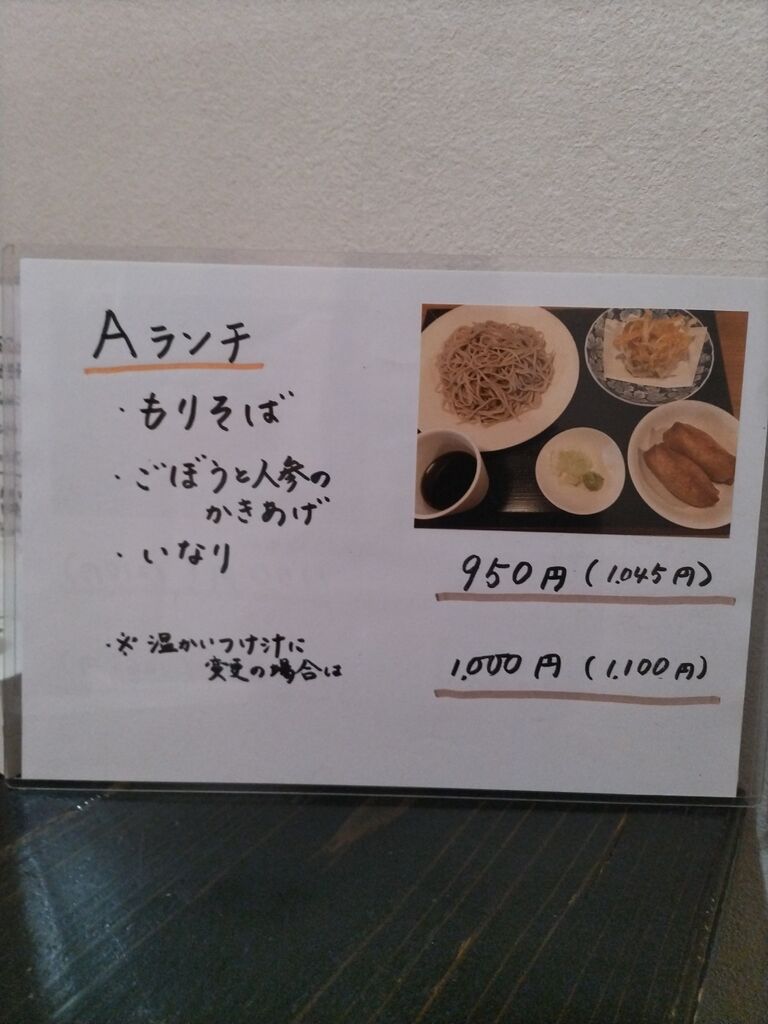 Aランチ
・もりそば
・ごぼうと人参の
かきあげ
・いなり
950円（1.045円）
・※ 温かいつけ汁に
変更の場合は
1.000円（1.100円）